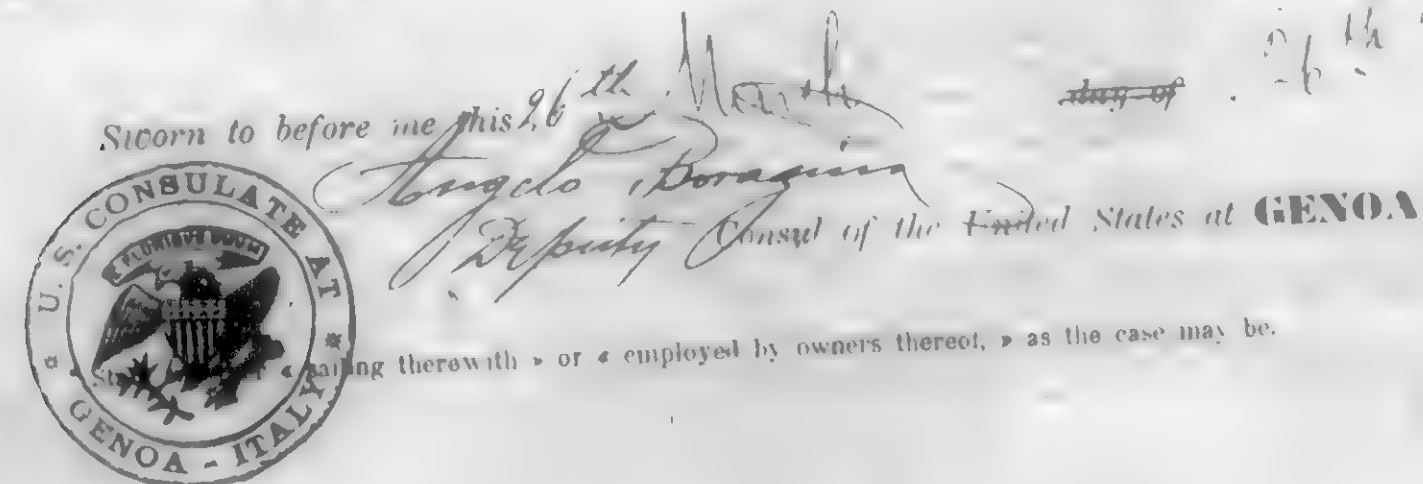 Sworn to before me this 26th March day of 26th
Angelo Boragina
Deputy Consul of the United States at GENOA
U.S. CONSULATE AT
E PLURIBUS UNUM
GENOA - ITALY
sailing therewith » or « employed by owners thereof, » as the case may be.